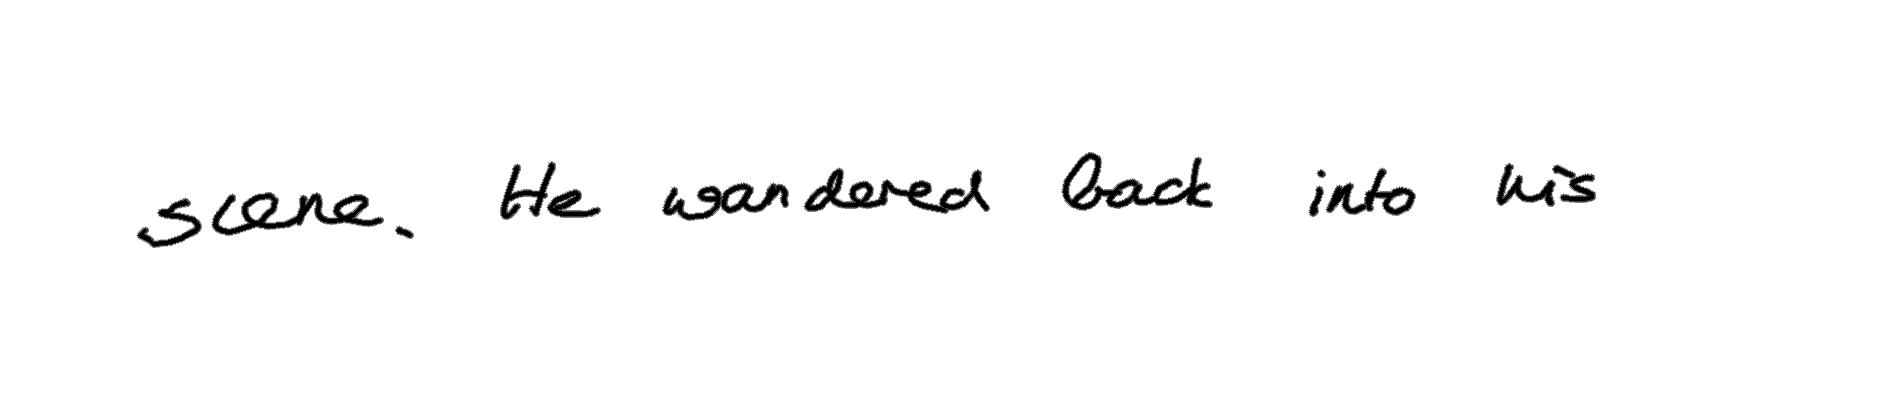 scene. He wandered back into his